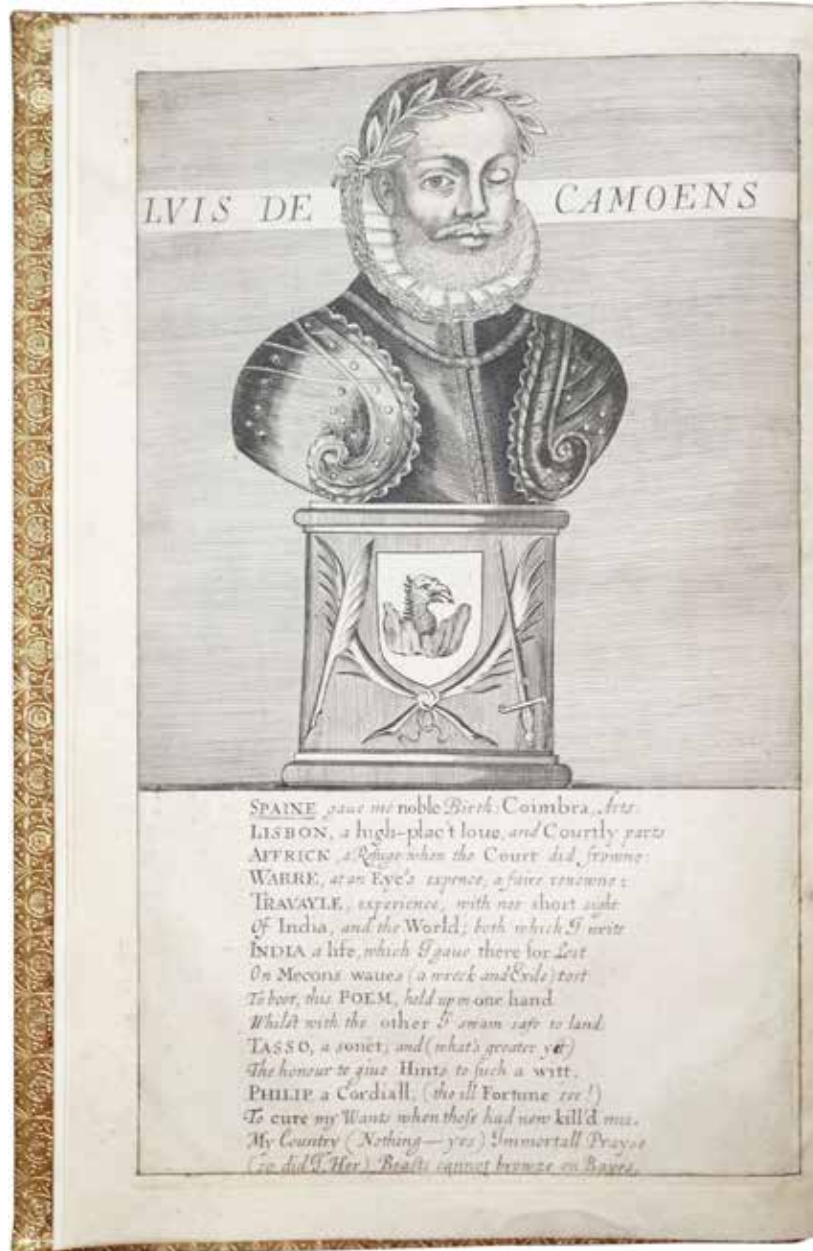 LVIS DE CAMOENS
SPAINE gaue me noble Birth: Coimbra, Arts:
LISBON, a high-plac't loue, and Courtly parts
AFFRICK, a Refuge when the Court did frowne:
WARRE, at an Eye's expence, a faire renowne:
TRAVAYLE, experience, with noe short sight
Of India, and the World; both which I write
INDIA a life, which I gaue there for Lost
On Mecons waues (a wreck and Exile) tost
To boot, this POEM, held up in one hand
Whilst with the other I swam safe to land:
TASSO, a sonet; and (what's greater yet)
The honour to giue Hints to such a witt.
PHILIP a Cordiall, (the ill Fortune see!)
To cure my Wants when those had new kill'd mee.
My Country (Nothing—yes) Immortall Prayse
(so did I, Her) Beasts cannot browze on Bayes.